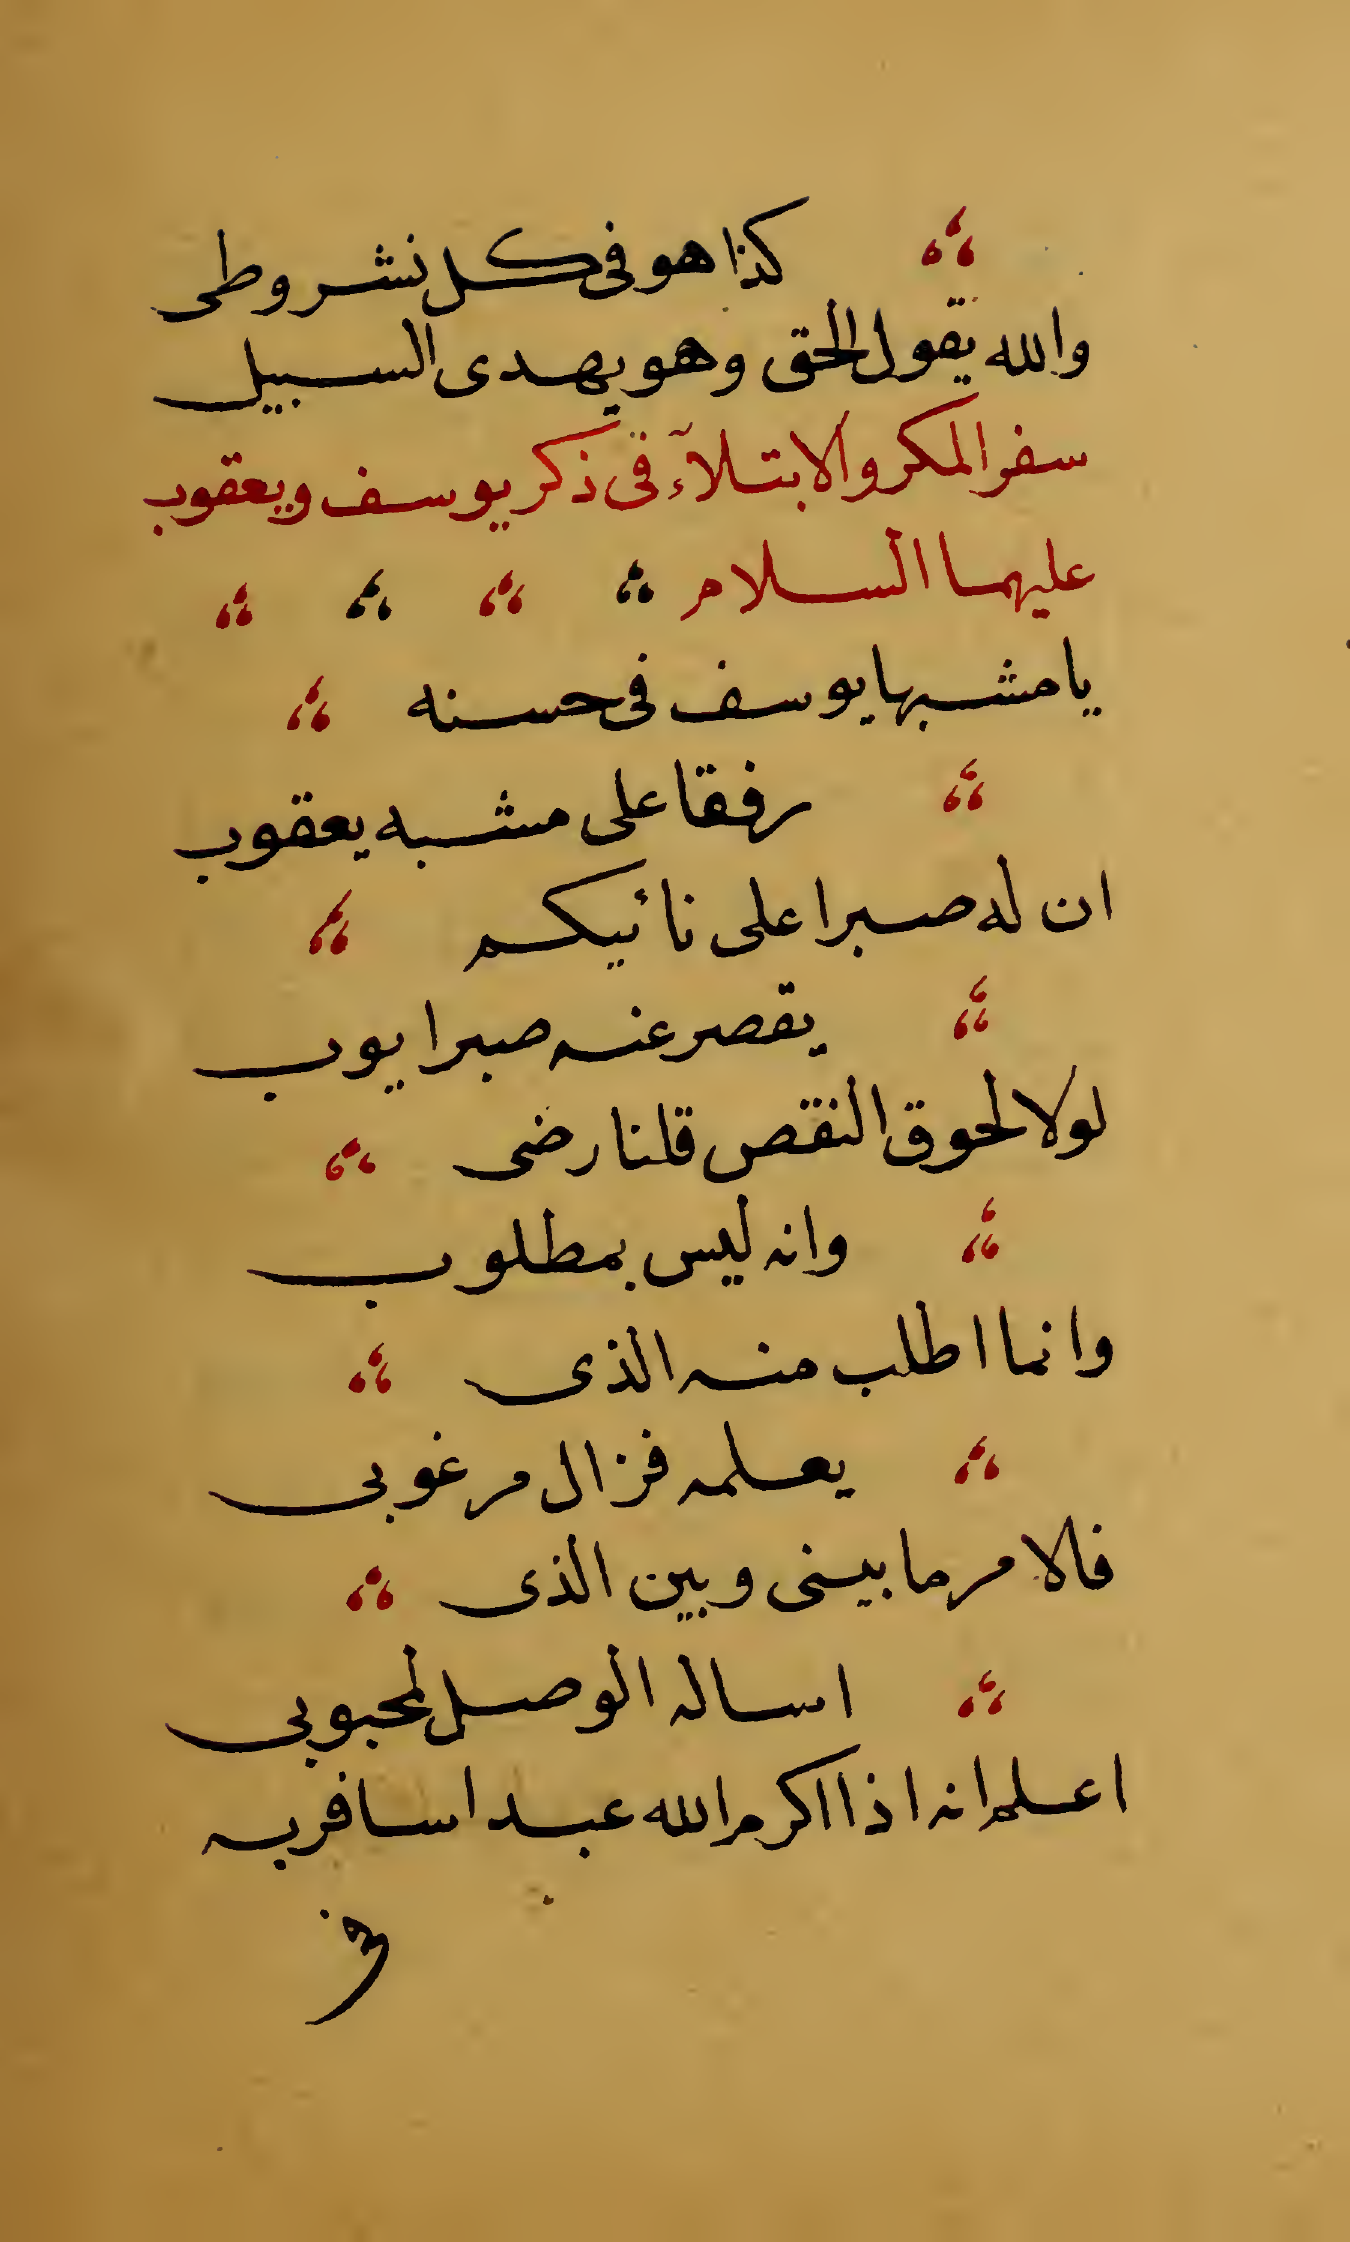 كذا هو فى كل نشر وطى
والله يقول الحق وهو يهدى السبيل
سفر المكر والابتلآء فى ذكر يوسف ويعقوب
عليهما السلام
يا مشبها يوسف فى حسنه
رفقا على مشبه يعقوب
ان له صبرا على نائيكم
يقصر عنه صبر ايوب
لولا لحوق النقص قلنا رضى
وانه ليس بمطلوب
وانما اطلب منه الذى
يعلمه فزال مرغوبى
فالامر ما بينى وبين الذى
اساله الوصل لمحبوبى
اعلم انه اذا اكرم الله عبدا سافر به